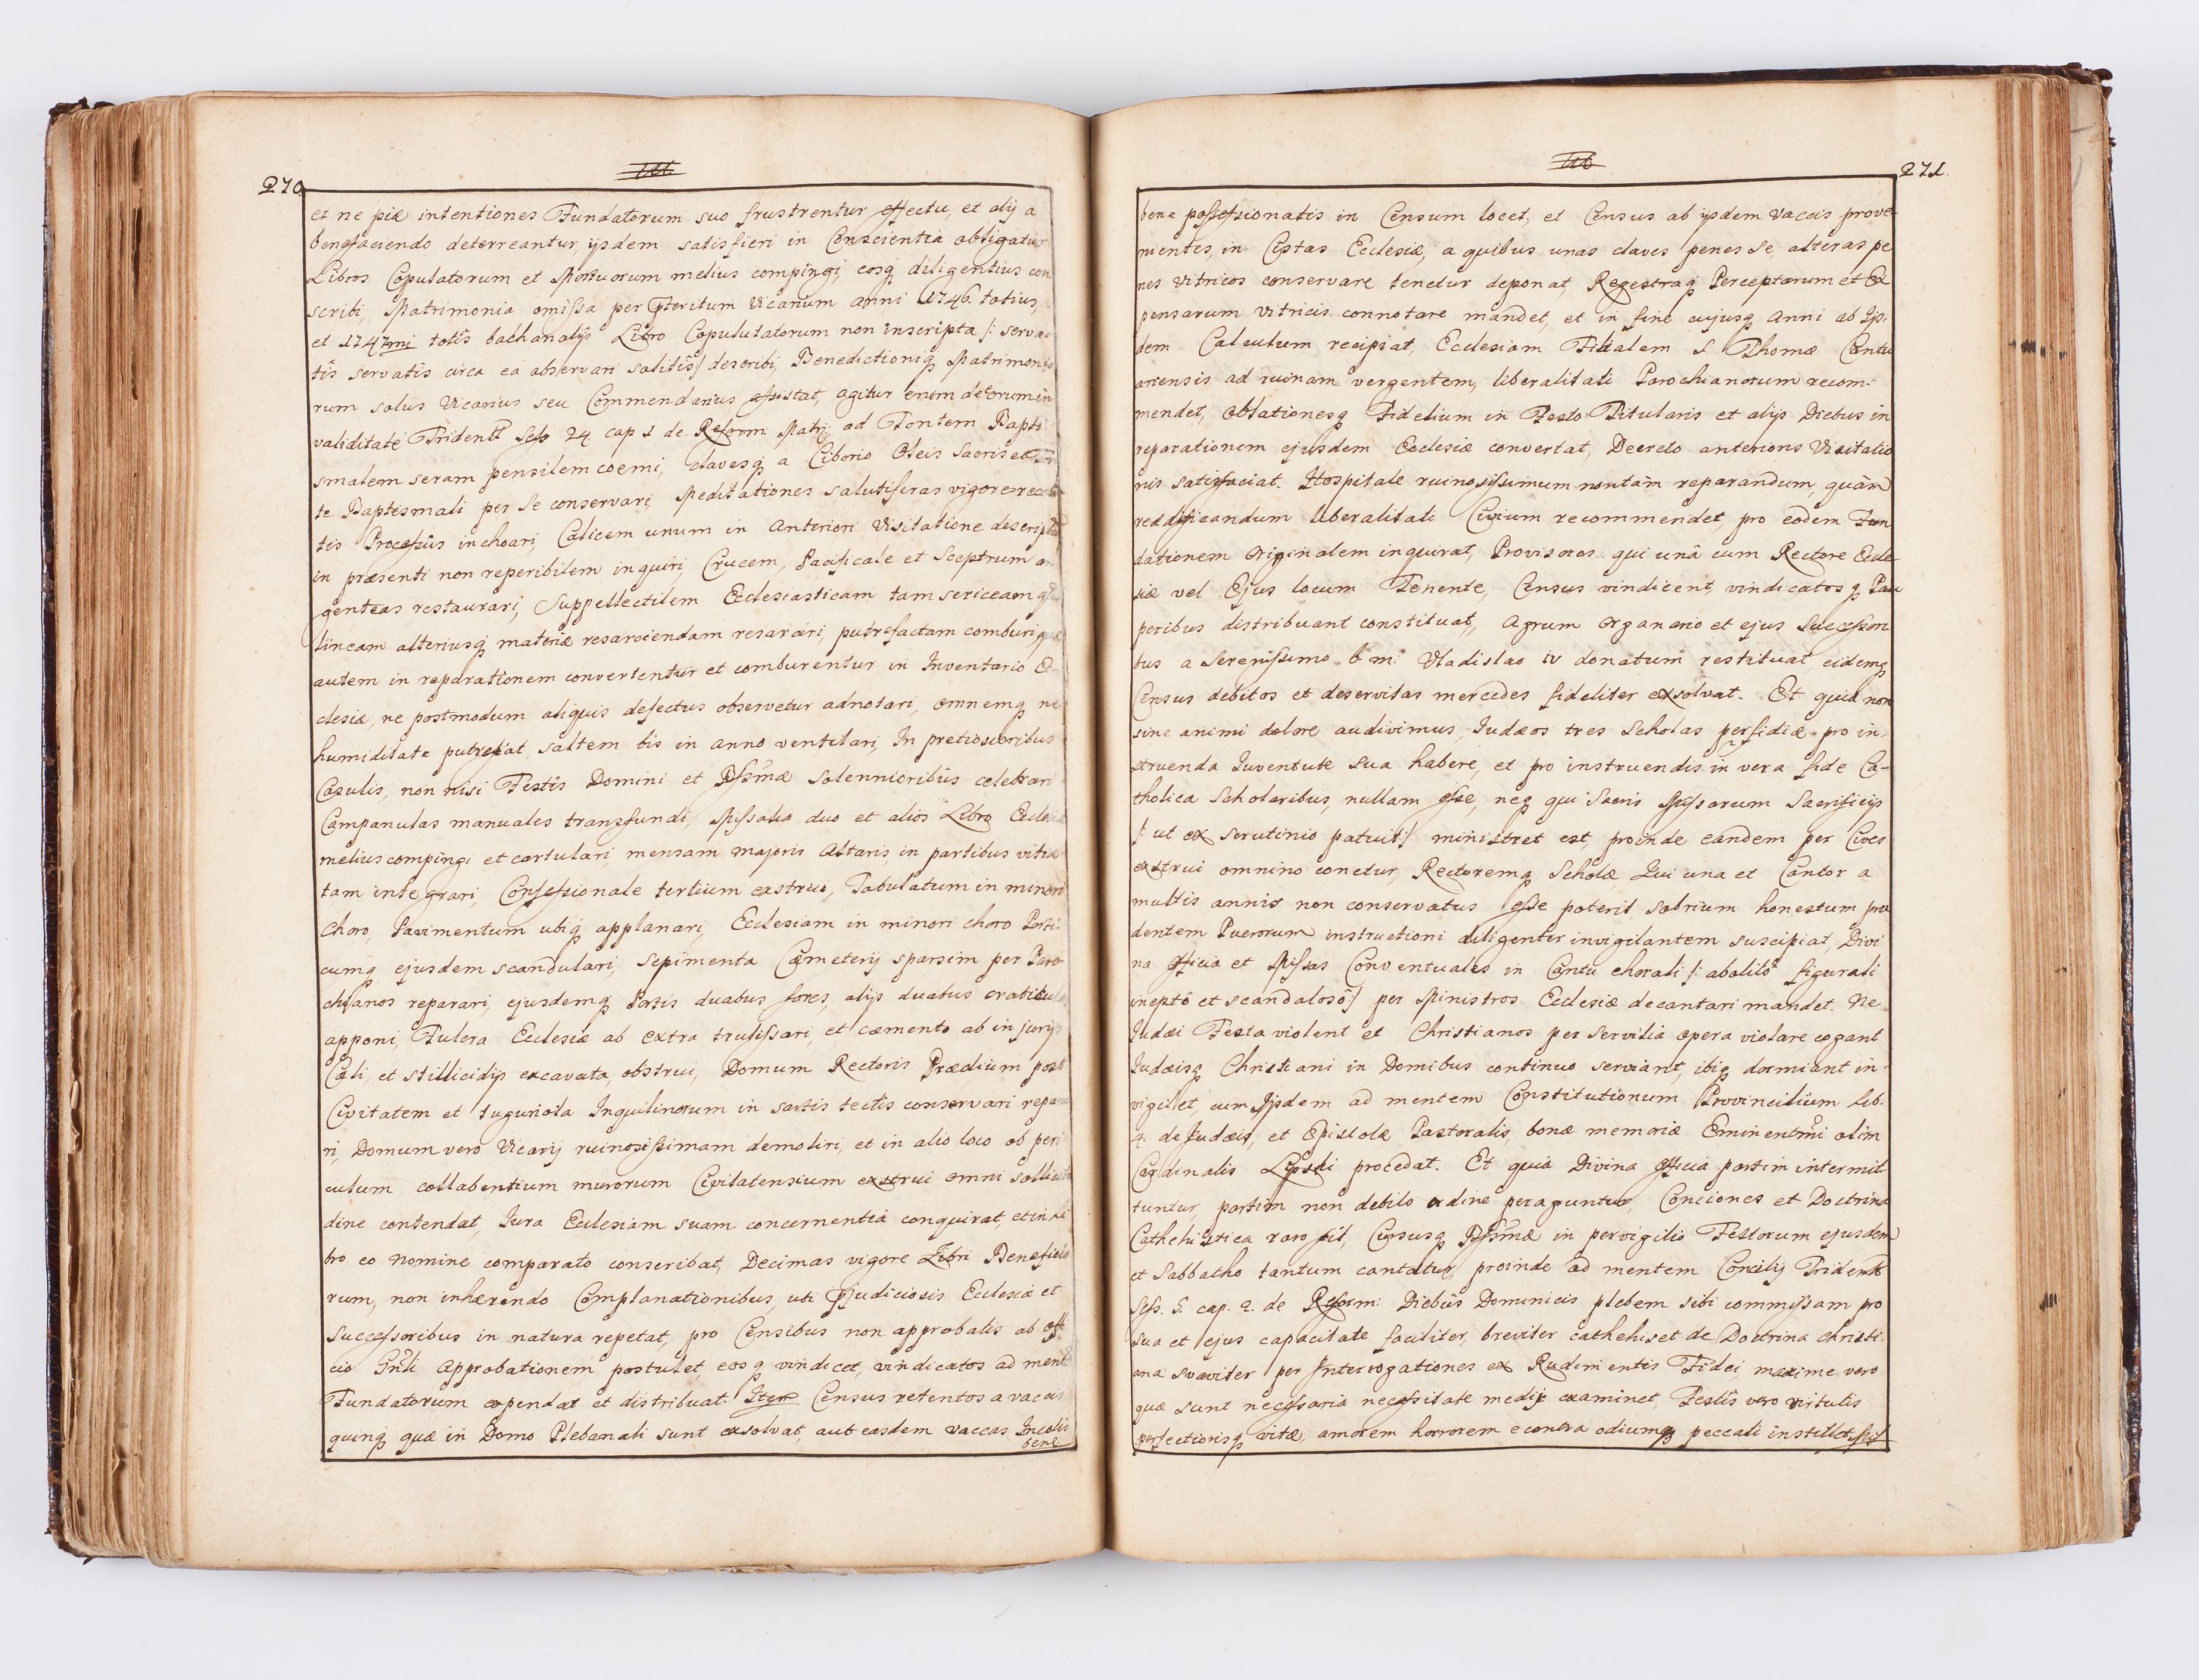 270
et ne piæ intentiones Fundatorum suo frustrentur effectu, et alij a
benefaciendo deterreantur, ijsdem satisfieri in Conscientia obligatur
Libros Copulatorum et Mortuorum melius compingi, eosq diligentius con
scribi, Matrimonia omissa per Pteritum Vicarium anni 1746. totius,
et 1747mi totis bachanalijs Libro Copulutatorum non inscripta /: serva
tis servatis circa ea observari solitis/ describi, Benedictioniq Matrimonio
rum solus Vicarius seu Commendarius assistat, agitur enim de eorum in
validitate Tridentt Sess 24 cap 1 de Reform Matrij ad Fontem Bapti
smalem seram pensilem coemi, clavesq a Ciborio Oleis Sacris et Fon
te Baptismali per se conservari, Meditationes salutiferas vigore
tis Processûs inchoari, Calicem unum in anteriori Visitatione descriptu
in præsenti non reperibilem inquiri, Crucem, Pacificale et Sceptrum ar
genteas restaurari, Suppellectilem Ecclesiasticam tam sericeam q
lineam alteriusq materiæ resarciendam resarciri, putrefactam comburi quæ
autem in reparationem convertentur et comburentur in Inventario Ec
clesiæ, ne postmodum aliquis defectus observetur adnotari, omnemq ne
humiditate putrefiat, saltem bis in anno ventilari, In pretiosioribus
Casulis, non nisi Festis Domini et Bssmæ solennioribûs celebrari
Campanulas manuales transfundi, Missalia duo et aliôs Libro Eccles
melius compingi et cartulari, mensam majoris Altaris, in partibus vitia
tam integrari, Confessionale tertium exstrui, Tabulatum in minori
Choro, Pavimentum ubiq applanari, Ecclesiam in minori choro Porti
cumq ejusdem scandulari, sepimenta Cæmeterij sparsim per Paro
chianos reparari, ejusdemq Portis duabus fores, alijs duabus craticulas
apponi, Fulcra Ecclesiæ ab extra trulissari, et cæmento ab injurijs
Cæli, et stillicidijs excavata, obstrui, Domum Rectoris Prædium post
Civitatem et tuguriola Inquilinorum in sartis tectis conservari repara
ri, Domum vero Vicarij ruinosissimam demoliri, et in alio loco ob peri
culum collabentium murorum Civitatensium exstrui omni sollicitu
dine contendat, Iura Ecclesiam suam concernentia conquirat, et in Li
bro eo nomine comparato conscribat, Decimas vigore Libri Beneficio
rum, non inhærendo Complanationibus, uti Pjudiciosis Ecclesiæ et
Successoribus in natura repetat, pro Censibus non approbatis ab offi
cio Gnli Approbationem postulet, eosq vindicet, vindicatos ad mente
Fundatorum expendat et distribuat. Item Census retentos a vaccis
quinq quæ in Domo Plebanali sunt exsolvat, aut easdem vaccas Incolis
bene
271.
bene possessionatis in Censum locet, et Census ab ijsdem vaccis prove
nientes, in Cistas Ecclesiæ, a quibus unas claves penes se, alteras pe
nes vitricos conservare tenetur deponat, Regestraq Perceptorum et Ex
pensarum vitricis connotare mandet, et in fine cujusq anni ab Ijs
dem Calculum recipiat, Ecclesiam Filialem S Thomæ Cantu
ariensis ad ruinam vergentem, liberalitati Parochianorum recom
mendet, oblationesq Fidelium in Festo Titularis et alijs Diebus in
reparationem ejusdem Ecclesiæ convertat, Decreto anterioris Visitatio
nis satisfaciat. Hospitale ruinosissimum non tàm reparandum, quàm
redificandum liberalitati Civium recommendet, pro eodem Fun
dationem originalem inquirat, Provisores qui unâ cum Rectore Eccle
siæ vel Ejus locum Tenente, Census vindicent, vindicatosq Pau
peribus distribuant constituat, agrum organario et ejus Successori
bus a Serenissimo b m: Vladislao IV donatum restituat eidemq
Census debitos et deservitas mercedes fideliter exsolvat. Et quia non
sine animi dolore audivimus, Iudæos tres Scholas perfidiæ pro in
struenda Iuventute sua habere, et pro instruendis in vera fide Ca-
tholica Scholaribus, nullam esse, neq qui Sacris Missarum Sacrificijs
/: ut ex scrutinio patuit/ ministret est, proinde eandem per Cives
exstrui omnino conetur, Rectoremq Scholæ Qui una et Cantor a
multis annis non conservatus esse poterit, sobrium honestum pru
dentem Puerorum instructioni diligenter invigilantem suscipiat, Divi
na officia et Missas Conventuales in Cantu chorali /: abolitô figurali
ineptô et scandalosô/ per Ministros Ecclesiæ decantari mandet. Ne
Iudæi Festa violent et Christianos per servilia opera violare cogant
Iudæisq Christiani in Domibus continuo serviant, ibiq dormiant in
vigilet, cum Ijsdem ad mentem Constitutionum Provincilium Lib.
4. de Iudæis, et Epistolæ Pastoralis, bonæ memoriæ Eminentmi olim
Cardinalis Lipski procedat. Et quia Divina officia partim intermit
tuntur, partim non debito ordine peraguntur, Conciones et Doctrina
Cathehistica raro fit, Cursusq Bssmæ in pervigilio Festorum ejusdem
et Sabbatho tantum cantatur, proinde ad mentem Concilij Tridentt
Sess. 5. cap. 2. de Reform: Diebûs Dominicis plebem sibi commissam pro
sua et ejus capacitate faciliter, breviter cathehiset de Doctrina christi
ana svaviter per Interrogationes ex Rudimentis Fidei, maxime vero
quæ sunt necessaria necessitate medij examinet, Festis vero virtutis
perfectionisq vitæ, amorem horrorem econtra odiumq peccati instillet,